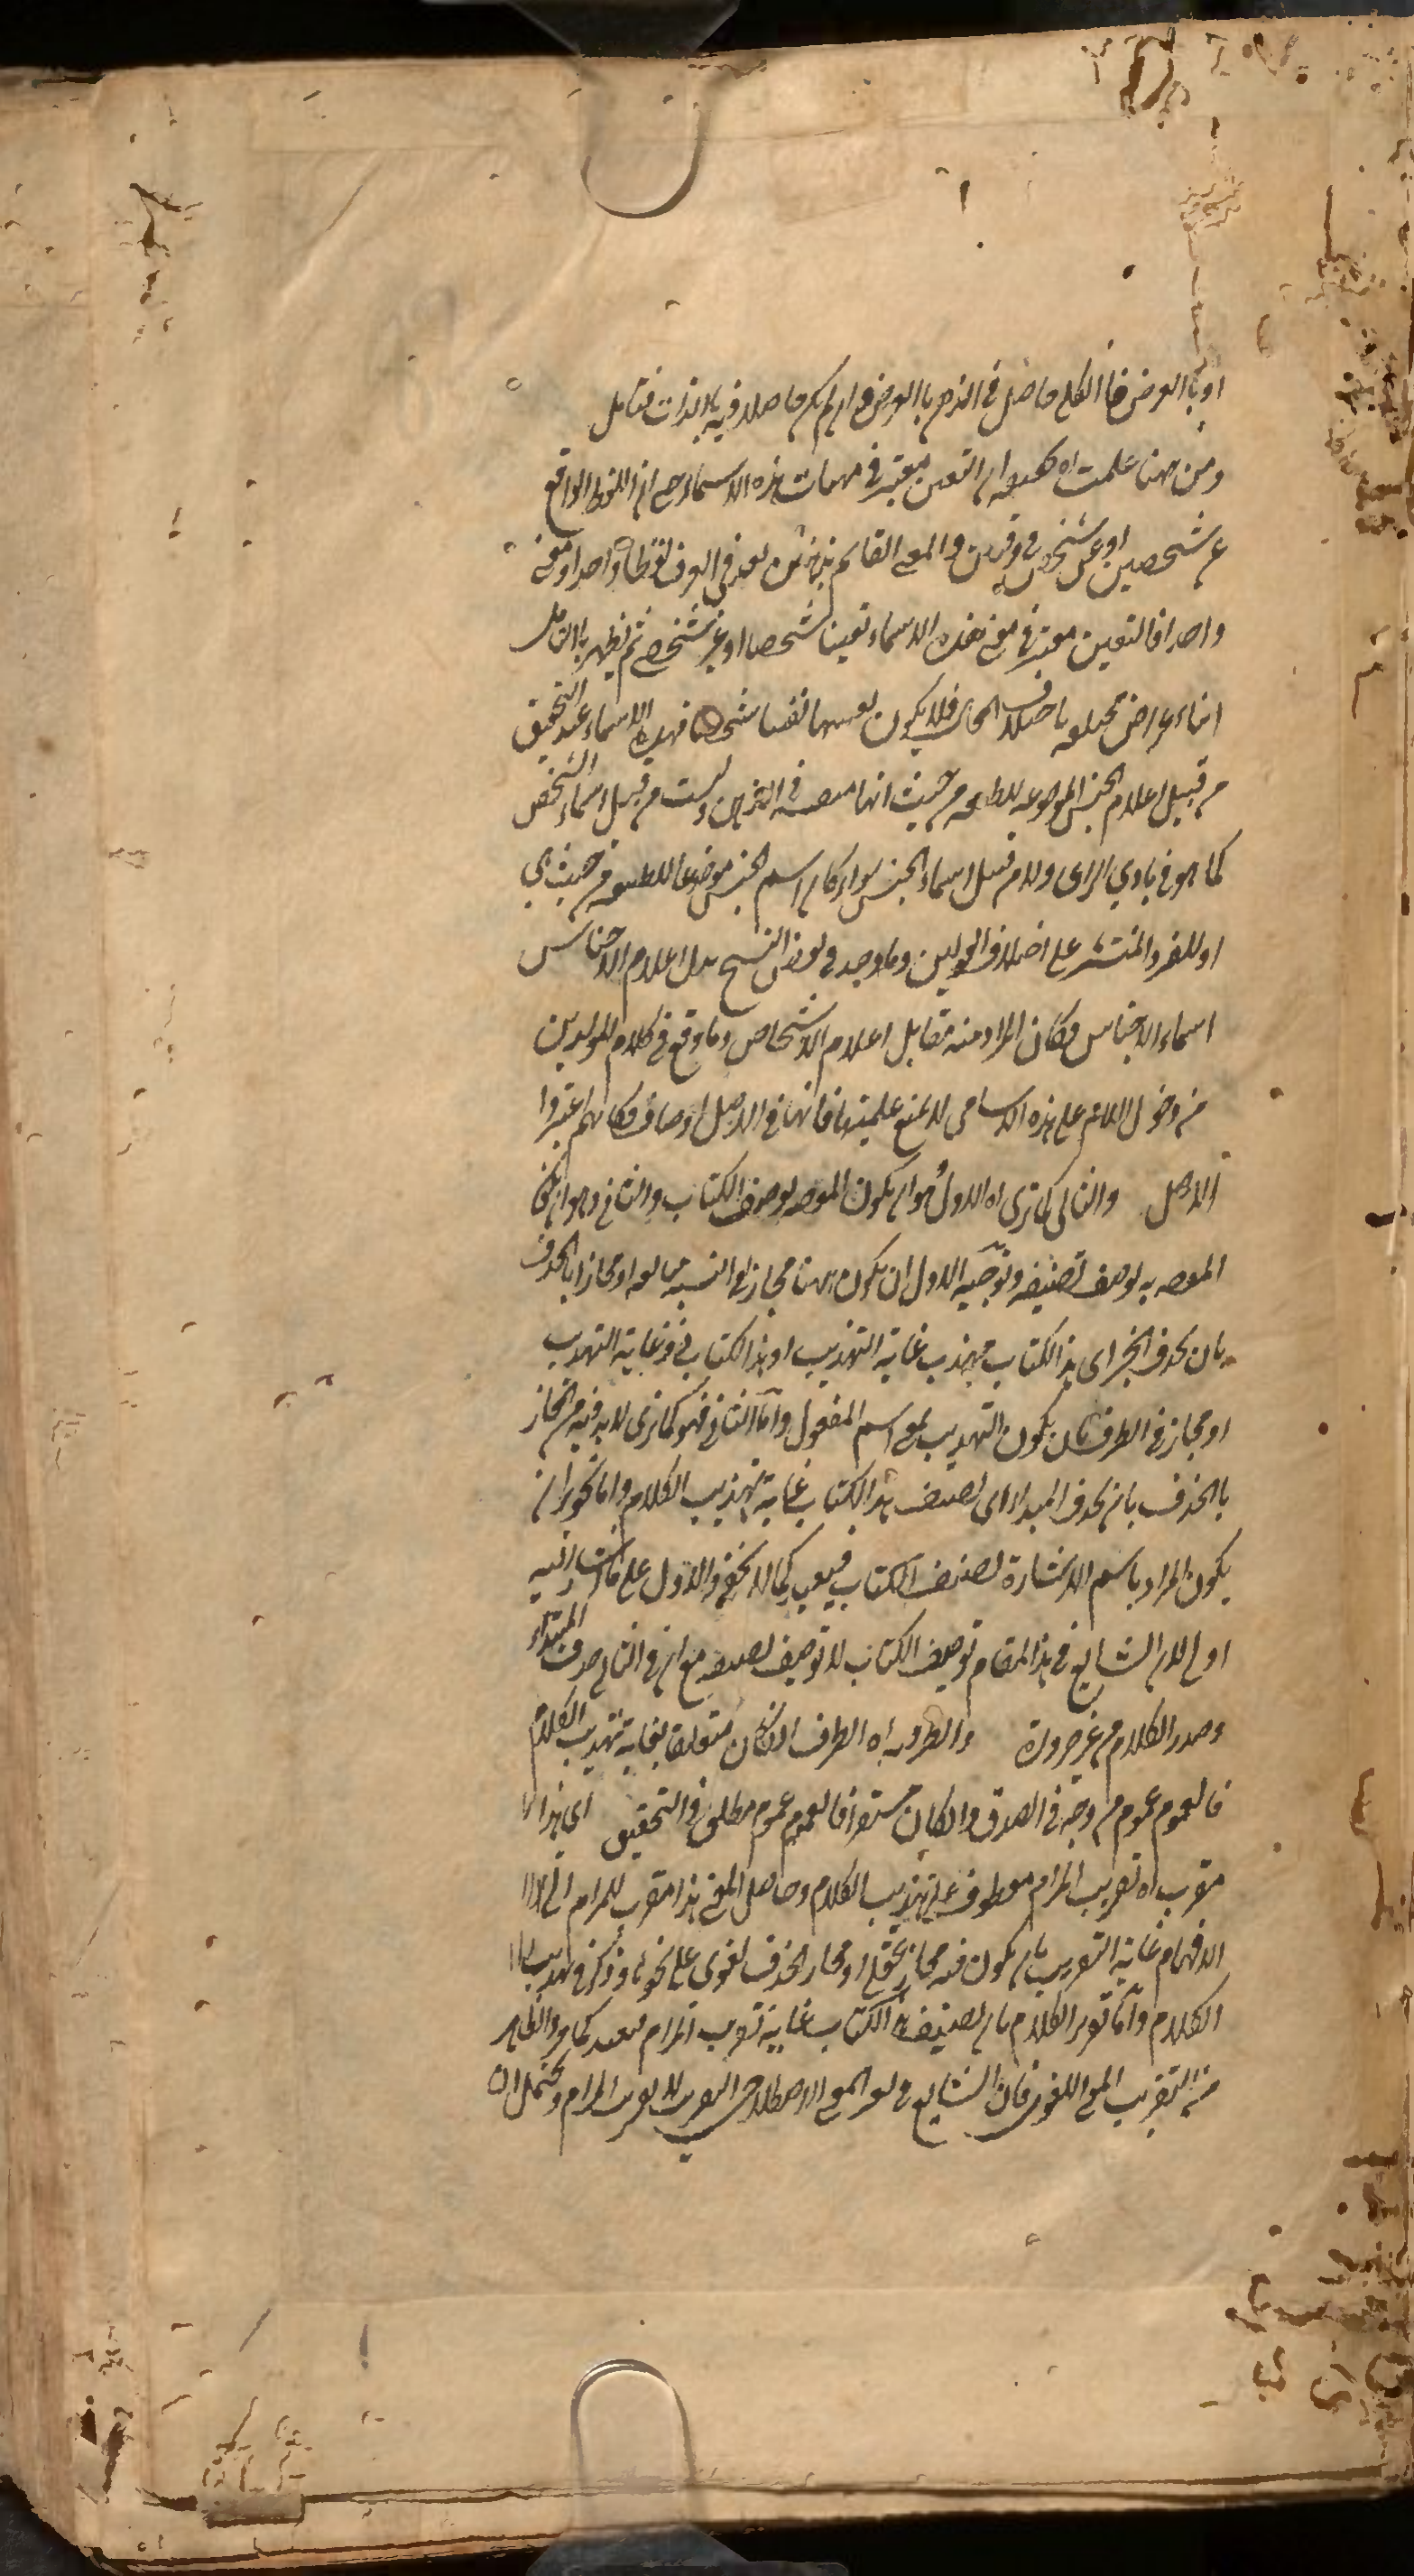 او بالعرض فالكل حاصل في الذهن بالعرض وان لم يكن حاصلا فيه بالذات فتامل
ومن ههنا علمت ان التعين معتبر في مهمات هذه الاسماء حتى ان اللفظ الواقع
عن شخصين او عن شخص في وقتين والمعنى القائم بذهنين يعد في العرف لفظا واحدا ومعنى
واحدا فالتعين معتبر في معنى هذه الاسماء تعينا شخصيا او غير شخصي ثم يظهر بالتامل
انها اعراض مختلفة باختلاف المحال فلا يكون تعينها تعينا شخصيا فهذه الاسماء عند التحقيق
من قبيل اعلام الجنس الموضوعه للطبيعه من حيث انها متعينة في الذهن وليست من قبيل اسماء الشخص
كما هو في بادي الراى ولا من قبيل اسماء الجنس سواء كان اسم الجنس موضوعا للطبيعه من حيث هي
او للفرد المنتشر على اختلاف القولين وما وجد في بعض النسخ بدل اعلام الاجناس
اسماء الاجناس فكان المراد منه مقابل اعلام الاشخاص وما وقع في كلام المولدين
من دخول اللام على هذه الاسامى لا يمنع علميتها فانها في الاصل اوصاف فكانهم اعتبروا
الاصل والثاني كما ترى اه الاول هو ان يكون المقصود وصف الكتاب والثاني وهو ان يكون
المقصود به وصف تصنيفه وتوجيه الاول ان يكون ههنا مجاز في النسبه مبالغه او مجاز بالحذف
بان يحذف الخبر اى هذا الكتاب مهذب غاية التهذيب او هذا الكتاب ذو غاية التهذيب
او مجاز في الطرف بان يكون التهذيب بمعنى اسم المفعول واما الثاني فهو كما ترى لابد فيه من المجاز
بالحذف بان يحذف المبتدا اى تصنيف هذا الكتاب غاية تهذيب الكلام واما تجويز ان
يكون المراد باسم الاشارة تصنيف الكتاب فبعيد كما لا يخفى والاول على ما اشار اليه
اولى لان الشايع في هذا المقام توصيف الكتاب لا توصيف تصنيفه مع ان في الثاني حذف المبتداء
وصدر الكلام من غير ضرورة والظرف اه الظرف ان كان متعلقا بغاية تهذيب الكلام
فالعموم عموم من وجه في الصدق وان كان مستقرا فالعموم عموم مطلق في التحقيق اى هذا
مقرب اه تقريب المرام معطوف على تهذيب الكلام وحاصل المعنى هذا مقرب للمرام الى
الافهام غاية التقريب بان يكون فيه مجاز عقلى او مجاز الحذف لغوى على نحو ما ذكر في تهذيب
الكلام واما تقدير الكلام بان تصنيف هذا الكتاب غاية تقريب المرام فبعيد كما مر والظاهر
من التقريب المعنى اللغوى فان الشايع في المعنى الاصطلاحى التقريب لا تقريب المرام ويحتمل ان